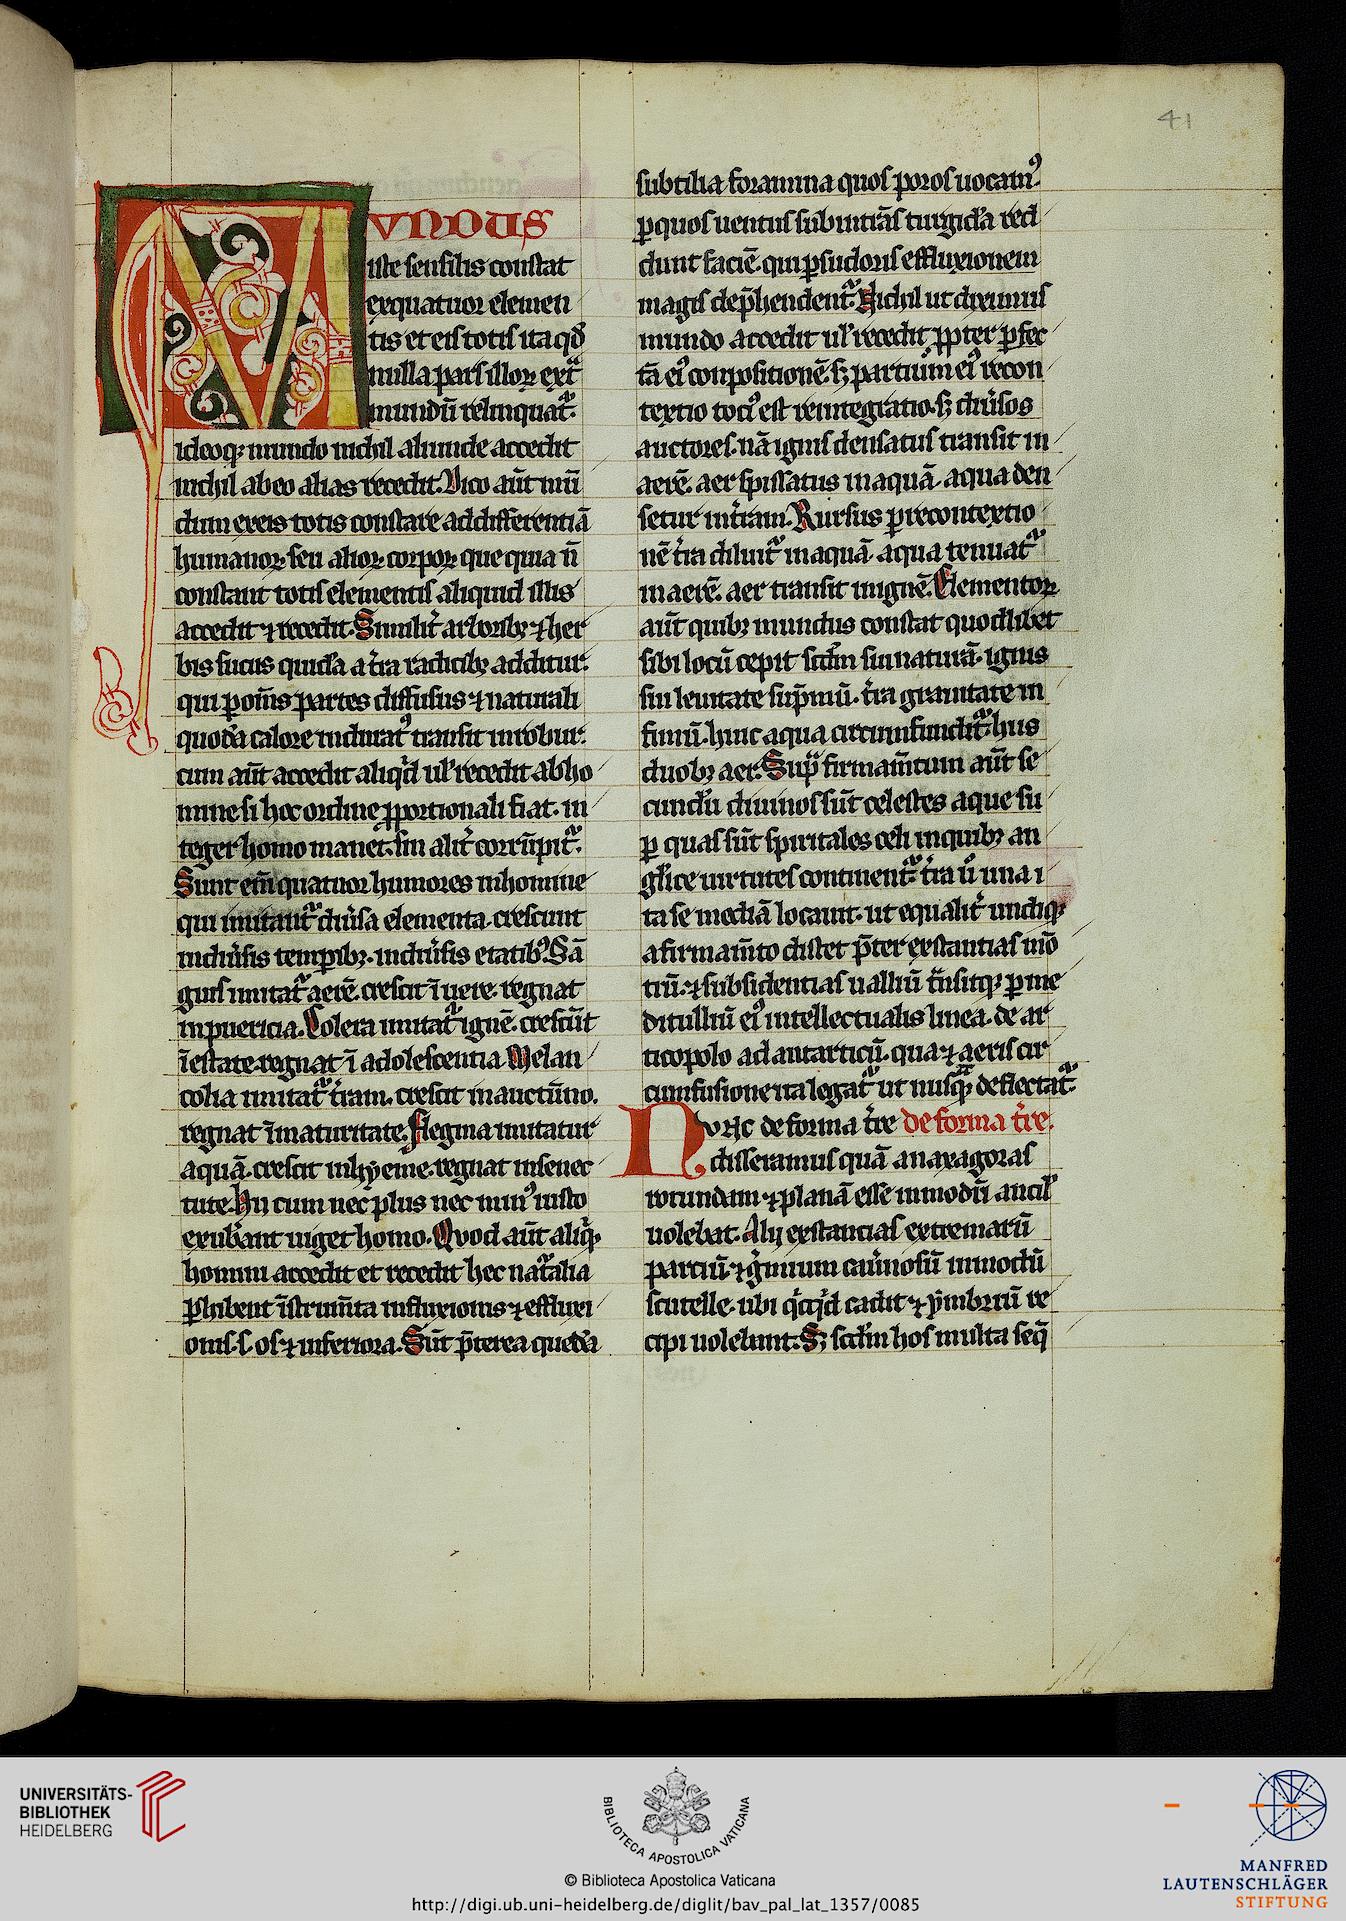 41
MVNDUS
iste sensilis constat
exquatuor elemen
tis et eis totis ita qđ
nulla pars illoꝝ ext͛
mundū relinquat͛.
ideoqꝫ mundo nichil aliunde accedit
nichil ab eo alias recedit. Dico aūt mū
dum exeis totis constare addifferentiā
humanoꝝ seu alioꝝ corpoꝝ que quia n̄
constant totis elementis aliquid illis
accedit ⁊ recedit. Similit͛ arboribꝫ ⁊ her
bis sucus quidā a t͛ra radicibꝫ additur.
qui ꝑ om̄s partes diffusus ⁊ naturali
quodā calore indurat᷒ transit in robur.
cum aūt accedit aliq͛d ul͛ recedit ab ho
mine si hoc ordine ꝓportionali fiat. in
teger homo manet. sin alit͛ corrūpit͛.
Sunt em̄ quatuor humores in homine
qui imitant͛ diu͛sa elementa. crescunt
indiu͛sis temporibꝫ. indiu͛sis etatib᷒. Sā
guis imitat͛ aerē. crescit ī uere. regnat
inpuericia. Colera imitat͛ ignē. crescūt
ī estate. regnat ī adolescentia. Melan
colia imitat͛ t͛ram. crescit in auctūno.
regnat ī maturitate. Flegma imitatur
aquā. crescit in hyeme. regnat in senec
tute. Hij cum nec plus nec min᷒ iusto
exub͛ant uiget homo. Quod aūt aliq͛
homini accedit et recedit hec nat͛alia
ꝑhibent īstrum̄ta influxionis ⁊ effluxi
onis. s. os ⁊ inferiora. Sūt p̄terea quedā
subtilia foramina quos poros uocam᷒.
ꝑ quos uentus subintrās turgidā red
dunt faciē. qui ꝑ sudoris effluxionem
magis dep̄hendent͛. Nichil ut diximus
mundo accedit ul͛ recedit ꝓpter ꝑfec
tā ei᷒ conpositionē. sꝫ partium ei᷒ recon
textio toci᷒ est reintegratio. sꝫ diu͛sos
auctores. nā ignis densatus transit in
aerē. aer spissatus in aquā. aqua den
setur in t͛ram. Rursus ꝑ recontextio
nē t͛ra diluit͛ in aquā. aqua tenuat͛
in aerē. aer transit in ignē. Elementoꝝ
aūt quibꝫ mundus constat quodlibet
sibi locū cepit scđm sui naturā. ignis
sui leuitate sup̄mū. t͛ra grauitate in
fimū. hinc aqua circumfundit͛. hus
duobꝫ aer. Sup͛ firmam̄tum aūt se
cundū diuinos sūt celestes aque su
ꝑ quas sūt spiritales celi in quibꝫ an
gl͛ice uirtutes continent͛. t͛ra u͛ una i
ta se mediā locauit. ut equalit͛ undiqꝫ
a firmam̄to distet p̄ter exstantias mō
tiū. ⁊ subsidentias ualliū. t͛nsitqꝫ ꝑ me
ditulliū ei᷒ intellectualis linea. de ar
tico polo ad antarticū. qua ⁊ aeris cir
cumfusione ita legat͛ ut nusq͛ꝫ deflectat͛.
NVNC de forma t͛re de forma t͛re.
disseramus quā anaxagoras
rotundam ⁊ planā esse inmodū ancil͛
uolebat. Alij exstancias extremarū
partiū ⁊ g͛mium cau͛nosū inmodū
scutelle. ubi q͛cq͛d cadit ⁊ ymbriū re
cipi uolebunt. Sꝫ scđm hos multa seq̄
UNIVERSITÄTS-
BIBLIOTHEK
HEIDELBERG
BIBLIOTECA APOSTOLICA VATICANA
© Biblioteca Apostolica Vaticana
http://digi.ub.uni-heidelberg.de/diglit/bav_pal_lat_1357/0085
MANFRED
LAUTENSCHLÄGER
STIFTUNG